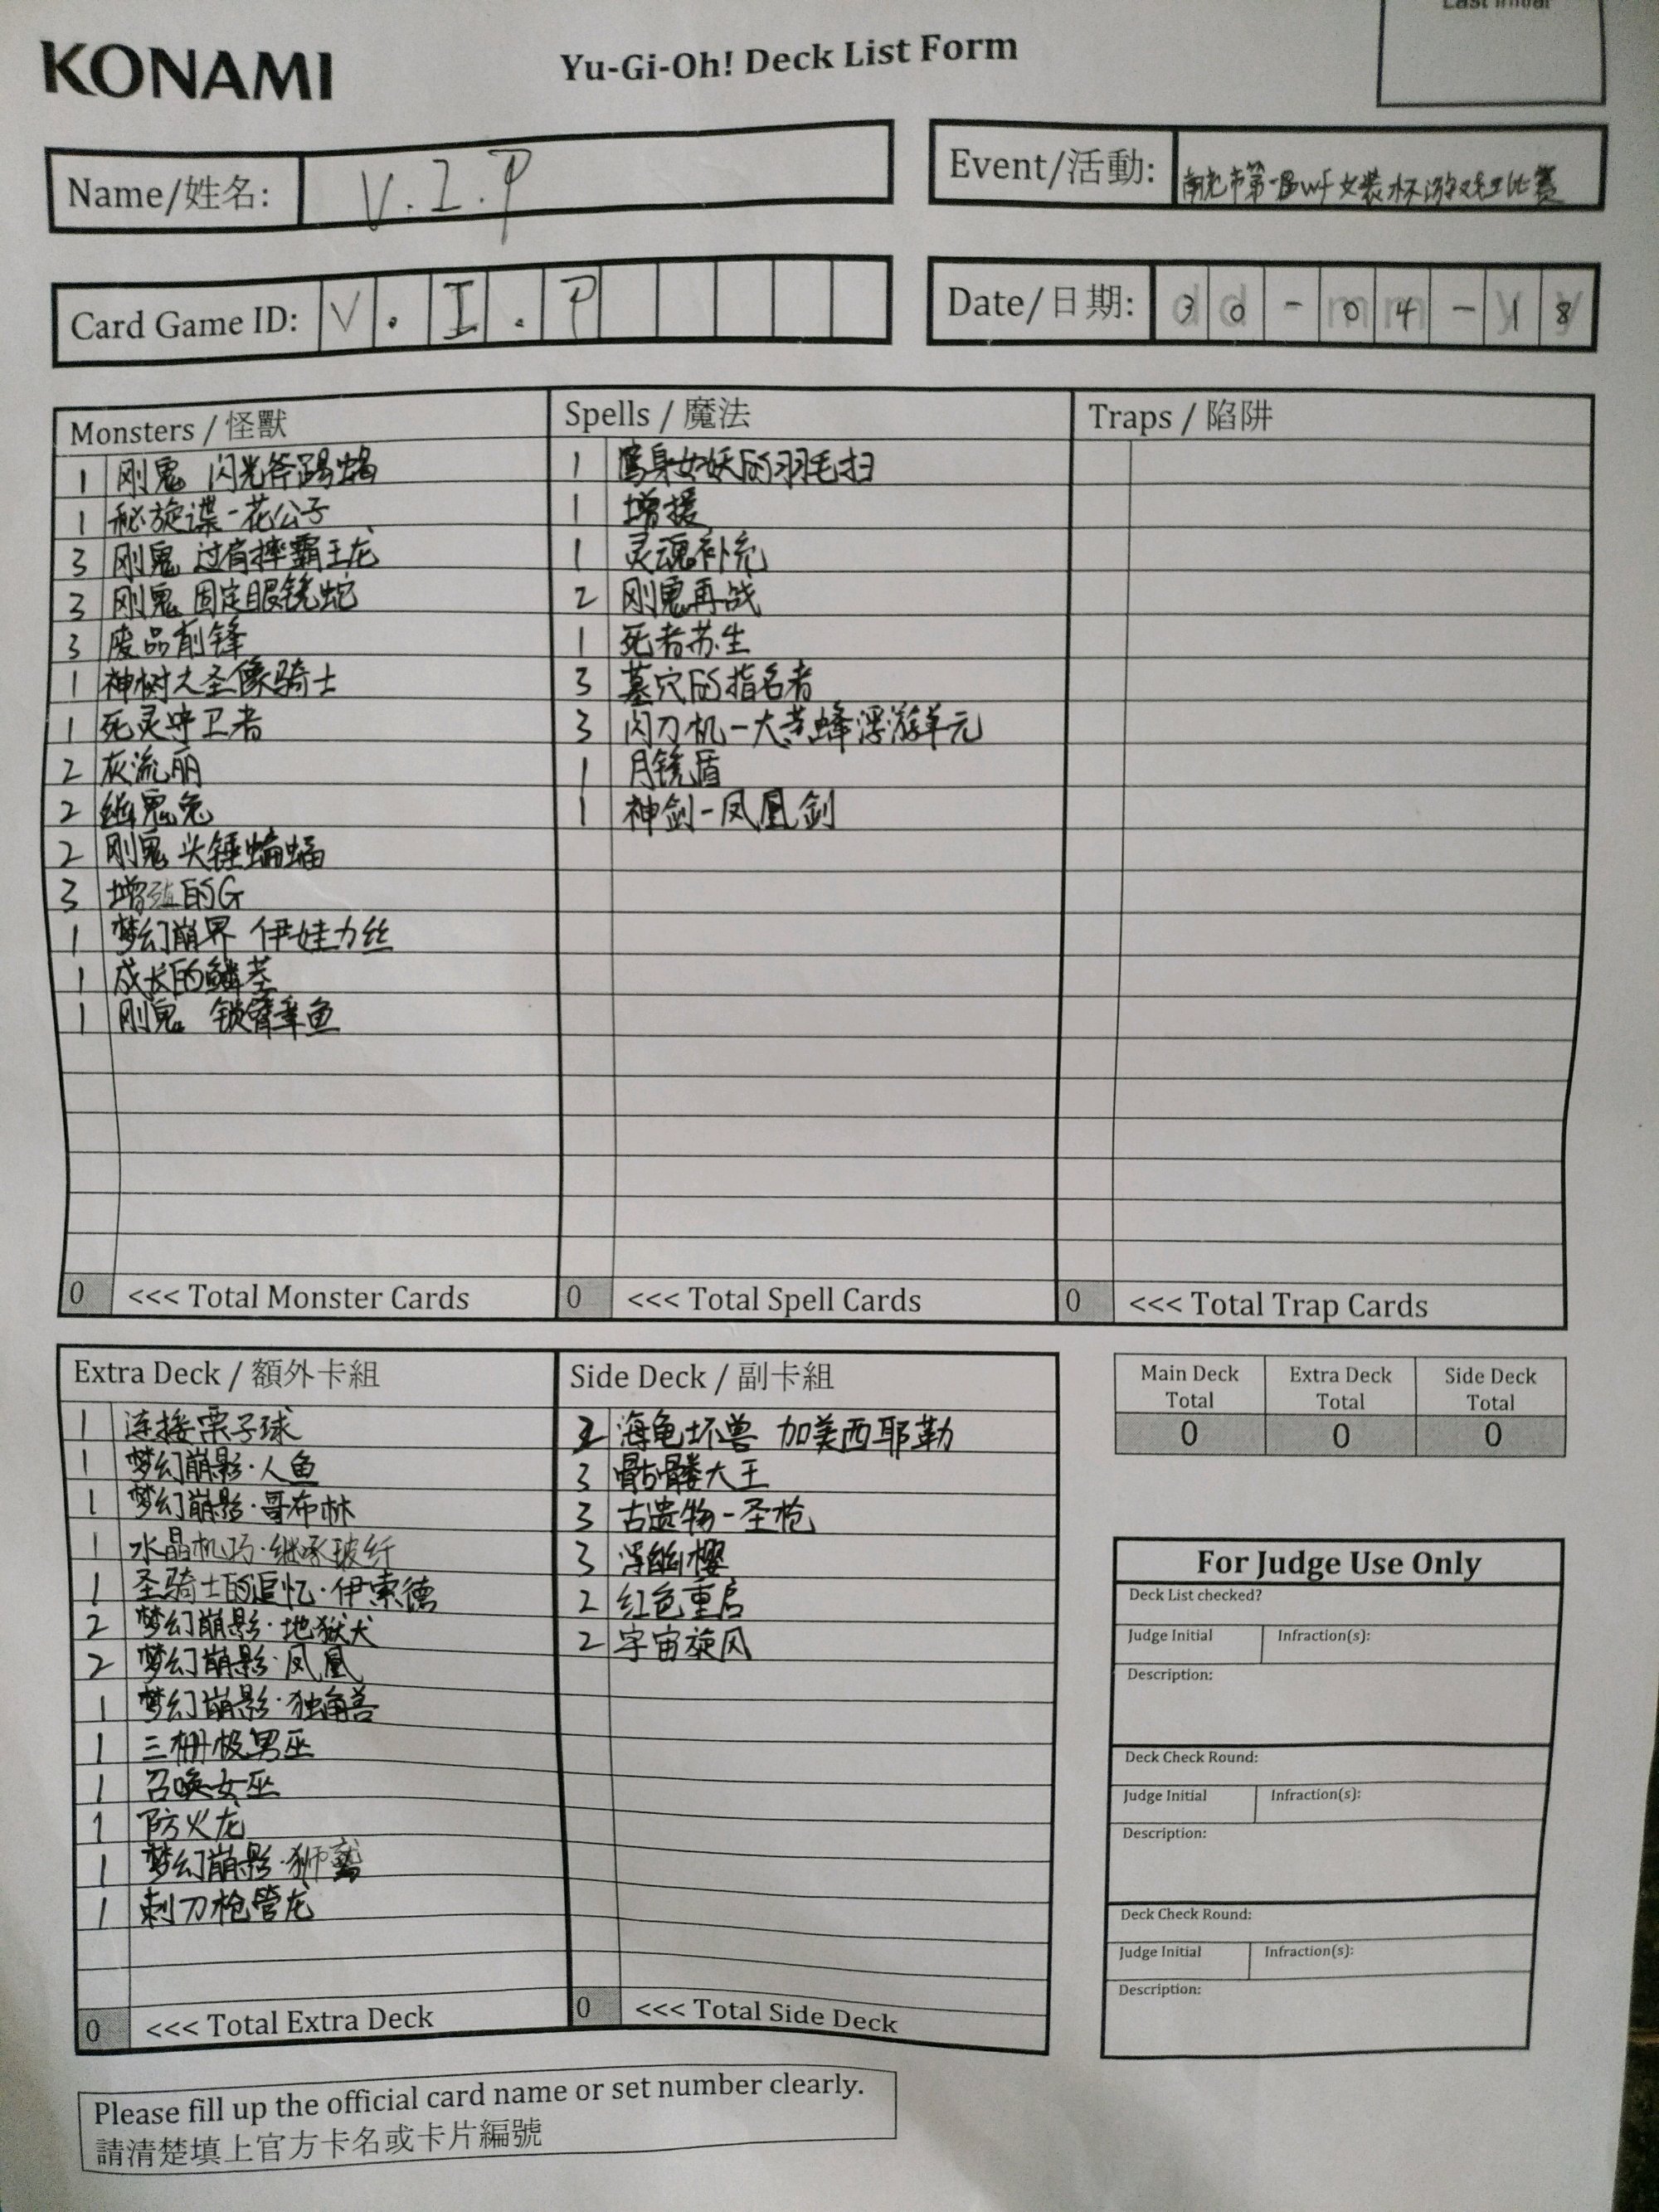 Last Initial
KONAMI
Yu-Gi-Oh! Deck List Form
Name/姓名: V.I.P
Event/活動: 南充市第一届WF女装杯游戏王比赛
Card Game ID: V . I . P
Date/日期: 30-04-18
Monsters / 怪獸
1 刚鬼 闪光斧踢蝎
1 秘旋谍-花公子
3 刚鬼 过肩摔霸王龙
3 刚鬼 固定眼镜蛇
3 废品前锋
1 神树之圣像骑士
1 死灵守卫者
2 灰流丽
2 幽鬼兔
2 刚鬼 头锤蝙蝠
3 增殖的G
1 梦幻崩界 伊娃力丝
1 成长的鳞茎
1 刚鬼 锁臂章鱼
0 <<< Total Monster Cards
Spells / 魔法
1 鹰身女妖的羽毛扫
1 增援
1 灵魂补充
2 刚鬼再战
1 死者苏生
3 墓穴的指名者
3 闪刀机-大黄蜂浮游单元
1 月镜盾
1 神剑-凤凰剑
0 <<< Total Spell Cards
Traps / 陷阱
0 <<< Total Trap Cards
Extra Deck / 額外卡組
1 连接栗子球
1 梦幻崩影·人鱼
1 梦幻崩影·哥布林
1 水晶机巧·继承玻纤
1 圣骑士的追忆·伊索德
2 梦幻崩影·地狱犬
2 梦幻崩影·凤凰
1 梦幻崩影·独角兽
1 三栅极男巫
1 召唤女巫
1 防火龙
1 梦幻崩影·狮鹫
1 刺刀枪管龙
0 <<< Total Extra Deck
Side Deck / 副卡組
2 海龟坏兽 加美西耶勒
3 骷髅大王
3 古遗物-圣枪
3 浮幽樱
2 红色重启
2 宇宙旋风
0 <<< Total Side Deck
Main Deck Total
Extra Deck Total
Side Deck Total
0 0 0
For Judge Use Only
Deck List checked?
Judge Initial Infraction(s):
Description:
Deck Check Round:
Judge Initial Infraction(s):
Description:
Deck Check Round:
Judge Initial Infraction(s):
Description:
Please fill up the official card name or set number clearly.
請清楚填上官方卡名或卡片編號